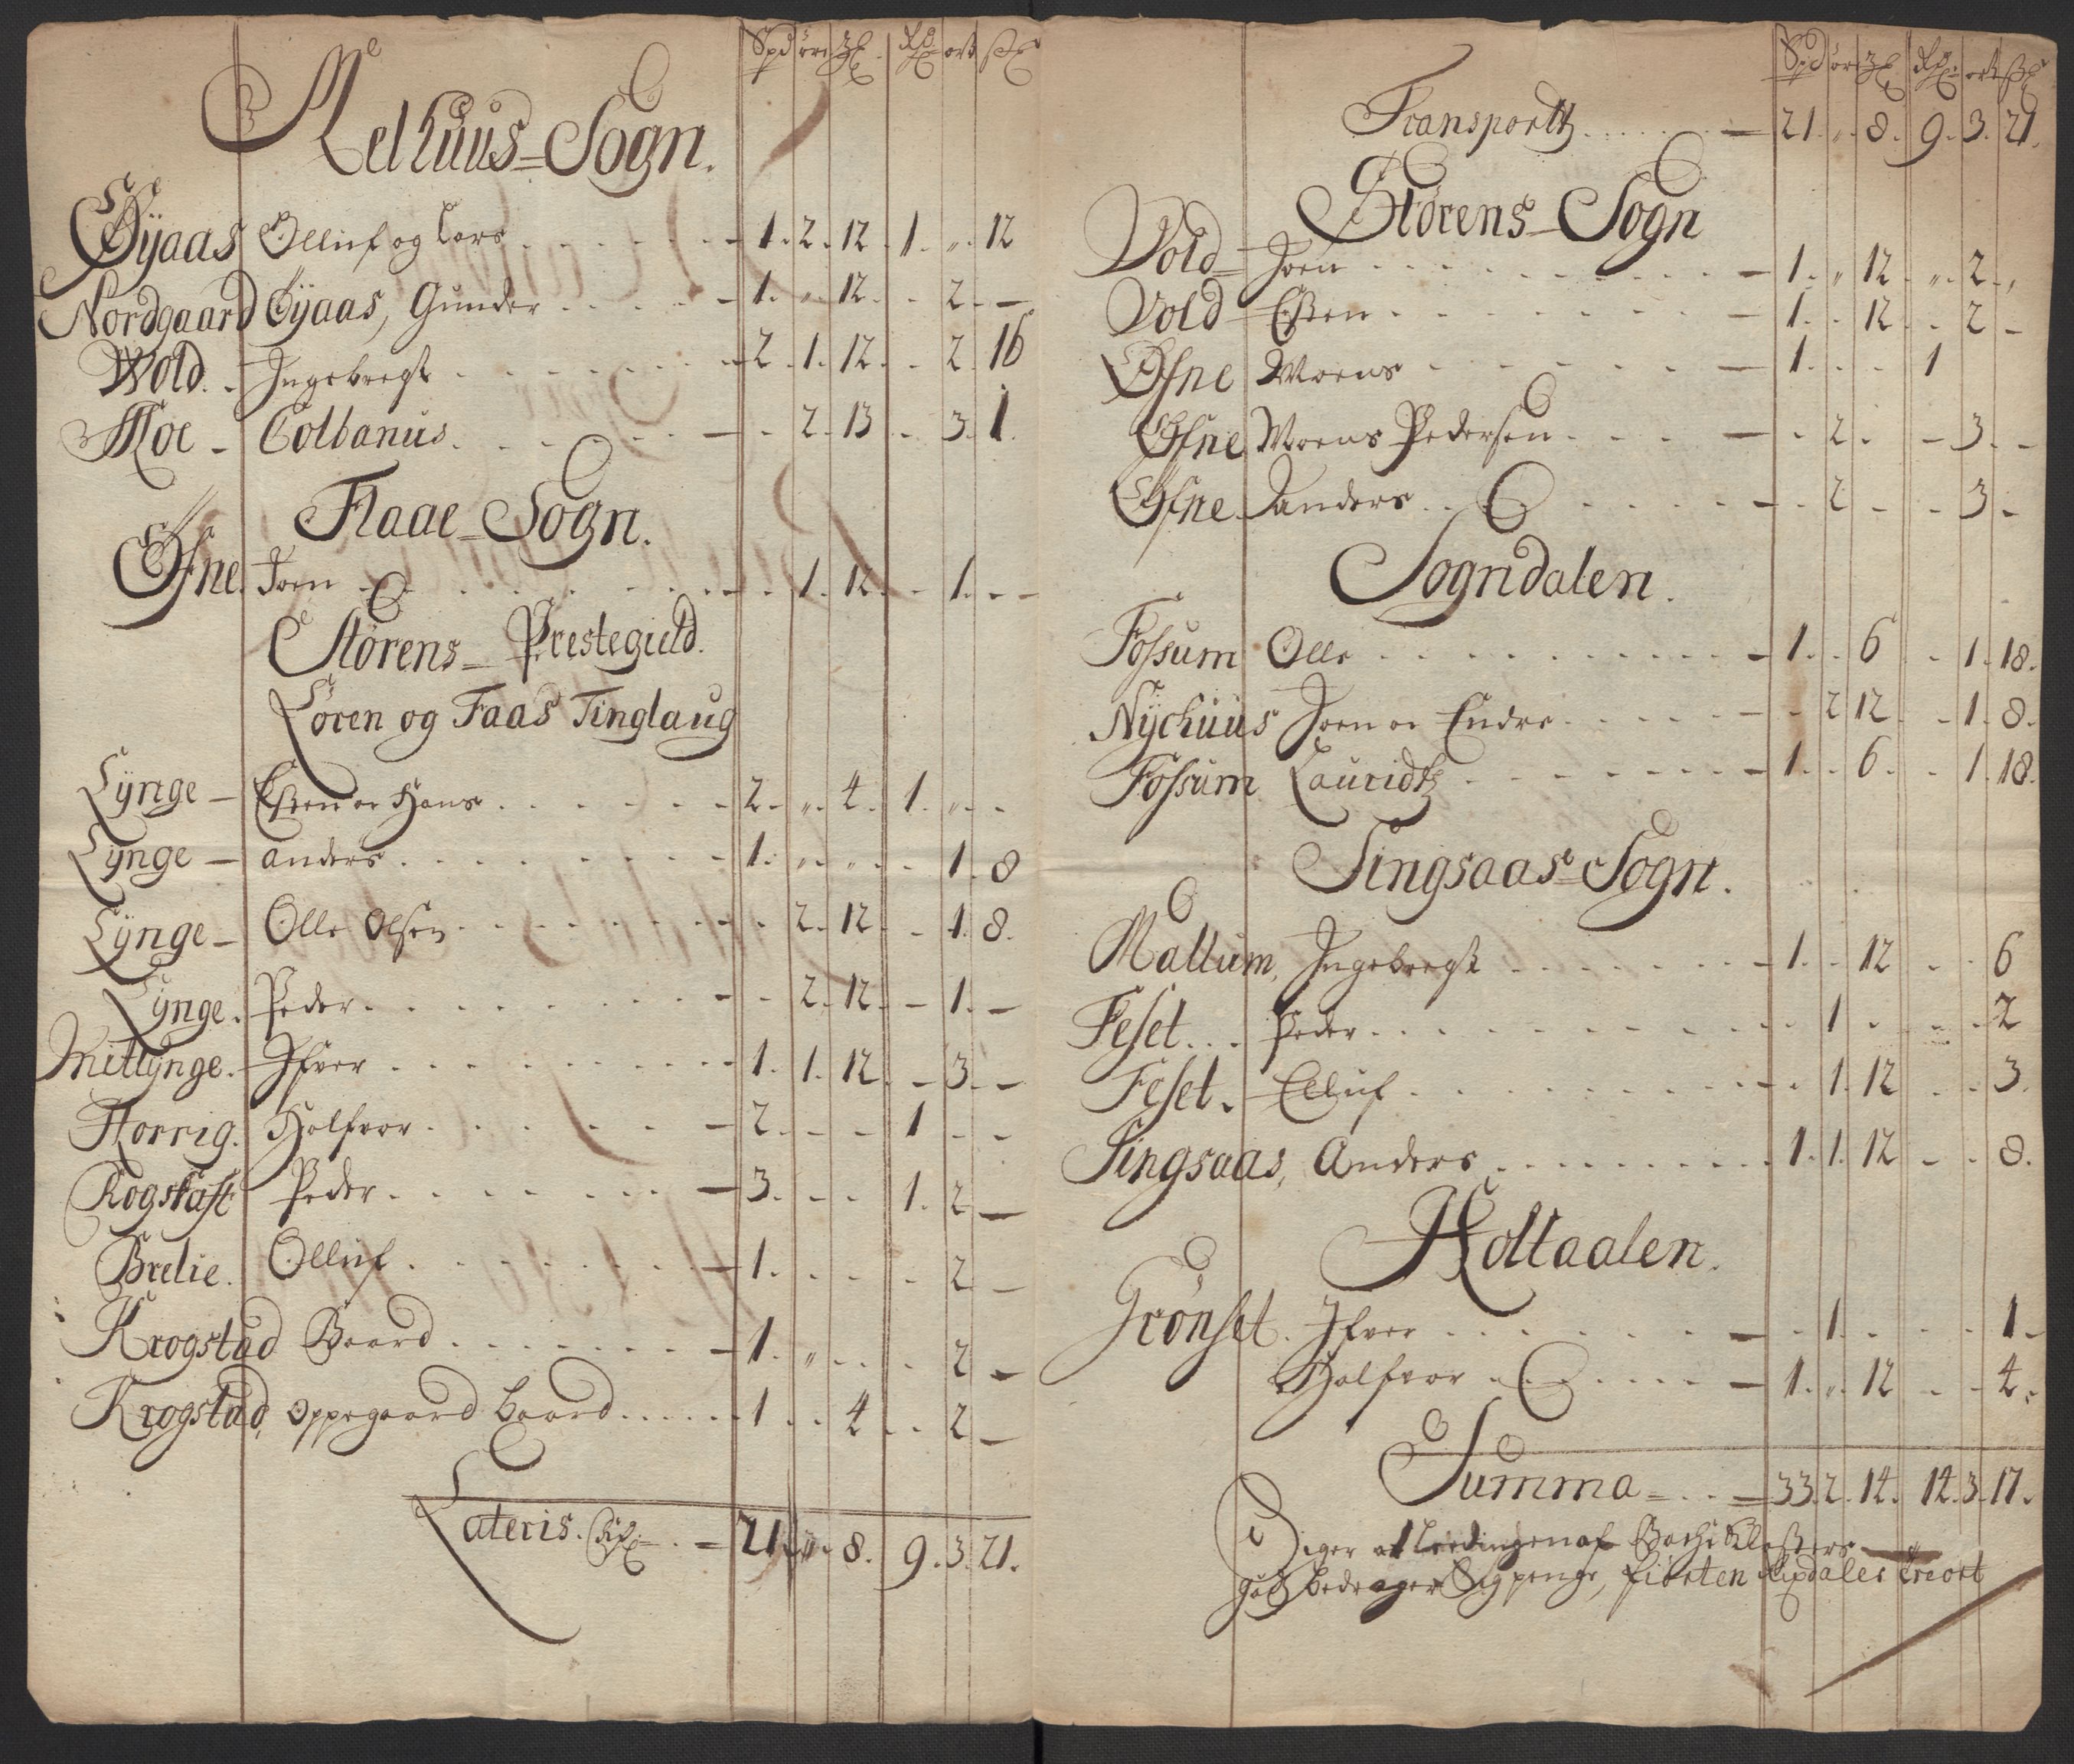 Spd öre ℔ Rd ort ß
Melhuus=Sogn.
Øÿaas Olluf og Lars . . . . 1. 2. 12. 1. „. 12
Nordgaard Øÿaas, Gunder . . . . 1. „. 12. - 2. -
Wold. Ingebregt . . . . 2. 1. 12. - 2. 16
Moe - Colbanus . . . . - 2. 13. - 3. 1.
Flaae=Sogn.
Øfne. Joen . . . . - 1. 12. - 1. - -
Störens=Prestegield.
Sören og Faas Tinglaug
Lÿnge - Esten oc Hans . . . . 2. „. 4. 1. „. -
Lÿnge - anders . . . . 1. „. „. - 1. 8
Lÿnge - Olle Olsen . . . . - 2. 12. - 1. 8.
Lÿnge. Peder . . . . - 2. 12. - 1. -
Mitlÿnge. Ifver . . . . 1. 1. 12. - 3. -
Horrig. Halfvor . . . . 2. - - 1 - -
Rogstaft Peder . . . . 3. - - 1. 2 -
Brelie. Olluf . . . . 1. - - - 2 -
Krogstad Baard . . . . 1. „. - - 2 -
Krogstad, oppegaard baard . . . . 1 - 4 - 2 -
Lateris. . = 21. „. 8. 9. 3. 21.
Spd ör ℔ Rd ort ß
Transportt . . . . 21. „. 8. 9. 3. 21.
Störens=Sogn
Vold= Joen . . . . 1. „ 12. „. 2. „
Vold= Esten . . . . 1. - 12. - 2 -
Øfne Moens . . . . 1. - - 1
Øfne Moens Pedersen . . . . - 2. - 3. -
Øfne anders . . . . - 2 - - 3 -
Sogndalen.
Fossum Olle . . . . 1. - 6 - 1. 18.
Nÿchuus Joen oc Endre . . . . - 2 12 - 1. 8.
Fossum Lauridtz . . . . 1. - 6. - 1. 18.
Singsaas=Sogn.
Mallum, Ingebregt . . . . 1. - 12 - - 6
Feset... Peder . . . . - 1 - - - 2
Feset. Elluf . . . . - 1. 12 - - 3.
Singsaas, Anders . . . . 1. 1. 12 - - 8.
Holtaalen.
Grönset. Ifver . . . . - 1. - - - 1 -
Halfvor . . . . 1. „. 12 - - 4.
Summa = . . = 33. 2. 14. 14. 3. 17.
Siger at Leedingen af Closters
godz bedrager Sig penge, fiorten Rixdaler treort